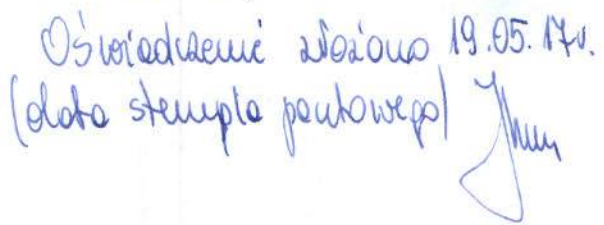 Oświadczenie złożono 19.05.17r.
(data stempla pocztowego)